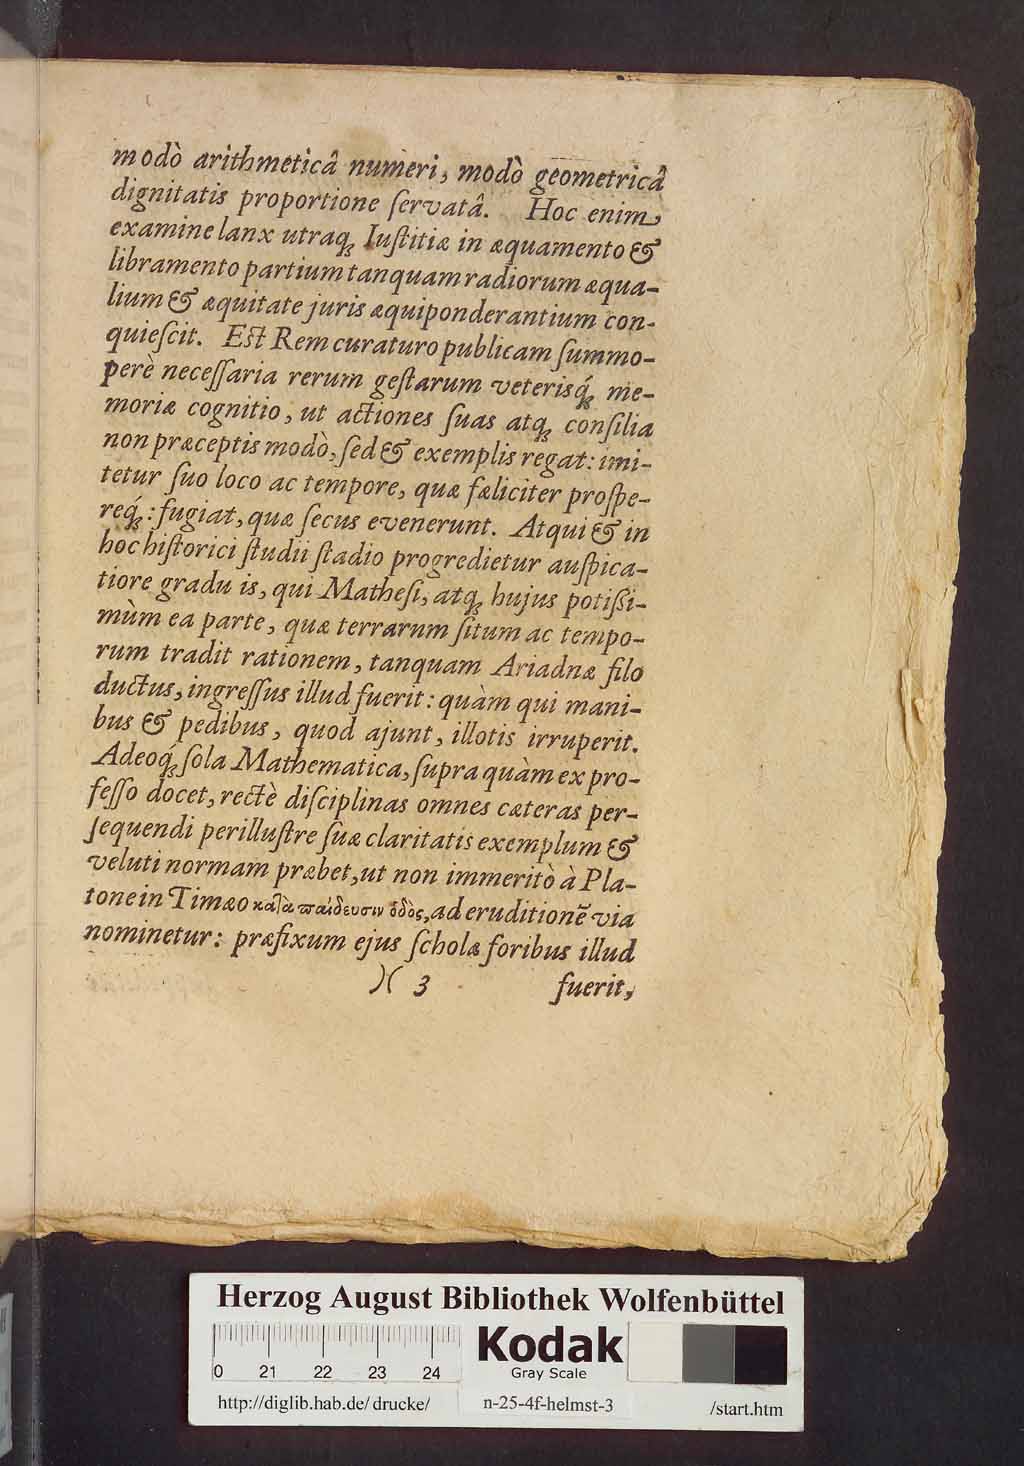 modò arithmeticâ numeri, modò geometricâ
dignitatis proportione ſervatâ. Hoc enim,
examine lanx utraq; Iuſtitiæ in æquamento &
libramento partium tanquam radiorum æqua-
lium & æquitate juris æquiponderantium con-
quieſcit. Eſt Rem curaturo publicam ſummo-
perè neceſſaria rerum geſtarum veterisq́; me-
moriæ cognitio, ut actiones ſuas atq; conſilia
non præceptis modò, ſed & exemplis regat: imi-
tetur ſuo loco ac tempore, quæ fæliciter proſpe-
req́;: fugiat, quæ ſecus evenerunt. Atqui & in
hoc hiſtorici ſtudii ſtadio progredietur auſpica-
tiore gradu is, qui Matheſi, atq; hujus potißi-
mùm ea parte, quæ terrarum ſitum ac tempo-
rum tradit rationem, tanquam Ariadnæ filo
ductus, ingreſſus illud fuerit: quàm qui mani-
bus & pedibus, quod ajunt, illotis irruperit.
Adeoq́; ſola Mathematica, ſupra quàm ex pro-
feſſo docet, rectè diſciplinas omnes cæteras per-
ſequendi perilluſtre ſuæ claritatis exemplum &
veluti normam præbet, ut non immeritò à Pla-
tone in Timæo καῖὰ παίδευσιν ὁδὸς, ad eruditionē via
nominetur: præfixum ejus ſcholæ foribus illud
)( 3 fuerit,
Herzog August Bibliothek Wolfenbüttel
0 21 22 23 24
Kodak
Gray Scale
http://diglib.hab.de/drucke/ n-25-4f-helmst-3 /start.htm